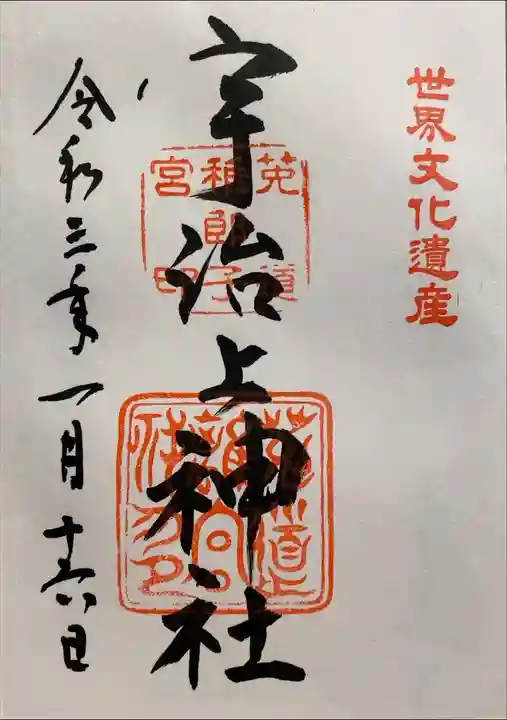 世界文化遺産
宇治上神社
令和三年一月十六日